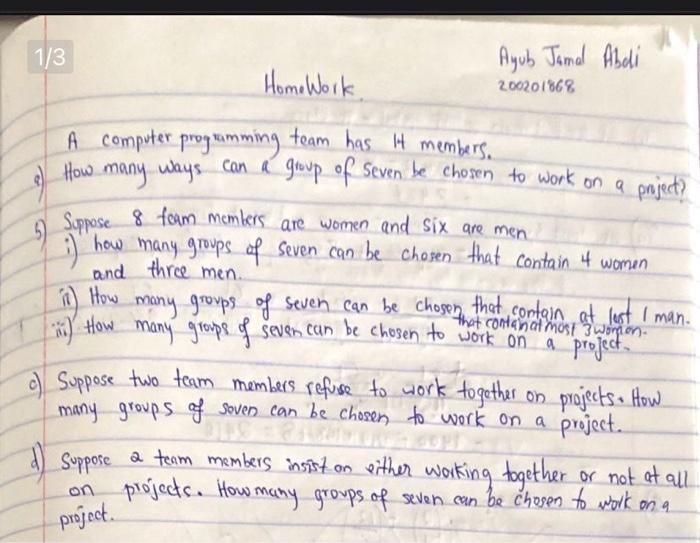 1/3
Ayub Jamal Abdi
HomeWork
200201868
A computer programming team has 14 members.
a) How many ways can a group of seven be chosen to work on a project?
b) Suppose 8 team members are women and six are men
i) how many groups of seven can be chosen that contain 4 women
and three men.
ii) How many groups of seven can be chosen that contain at lest 1 man.
that contain at most 3 women.
iii) How many groups of seven can be chosen to work on a project.
c) Suppose two team members refuse to work together on projects. How
many groups of seven can be chosen to work on a project.
d) Suppose 2 team members insist on either working together or not at all
on projects. How many groups of seven can be chosen to work on a
project.